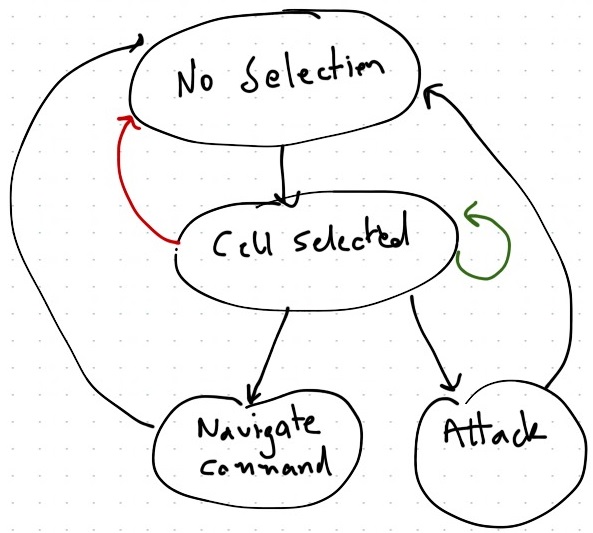 No Selection
Cell Selected
Navigate
Command
Attack